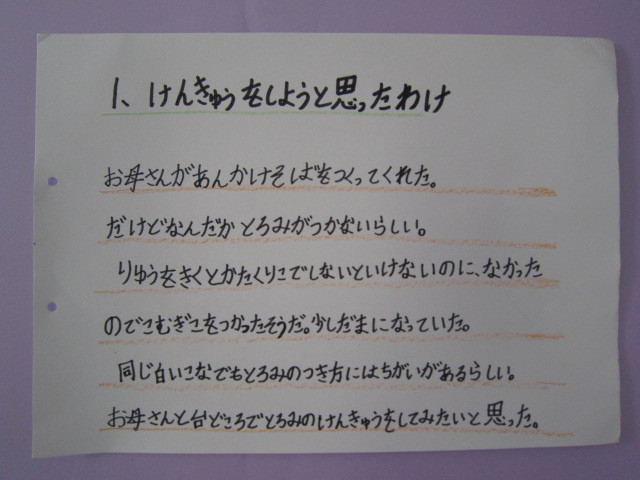 1、けんきゅうをしようと思ったわけ
お母さんがあんかけそばをつくってくれた。
だけどなんだかとろみがつかないらしい。
りゆうをきくとかたくりこでしないといけないのに、なかった
のでこむぎこをつかったそうだ。少しだまになっていた。
同じ白いこなでもとろみのつき方にはちがいがあるらしい。
お母さんと台どころでとろみのけんきゅうをしてみたいと思った。